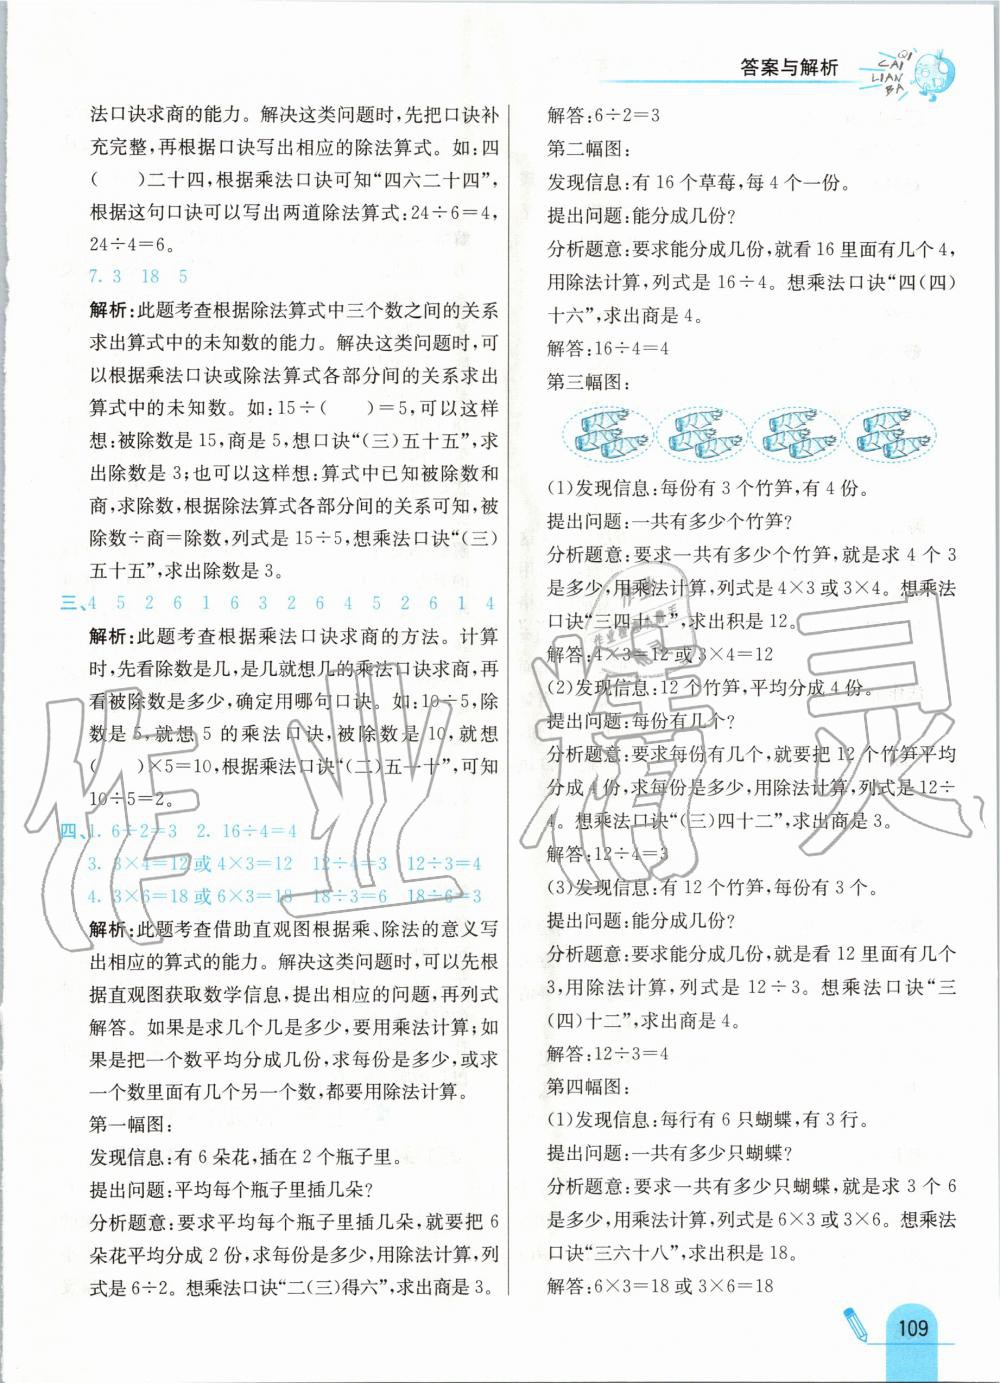 答案与解析
QI
CAI
LIAN
BA
法口诀求商的能力。解决这类问题时,先把口诀补
充完整,再根据口诀写出相应的除法算式。如:四
(    )二十四,根据乘法口诀可知“四六二十四”,
根据这句口诀可以写出两道除法算式:24÷6=4,
24÷4=6。
7. 3  18  5
解析:此题考查根据除法算式中三个数之间的关系
求出算式中的未知数的能力。解决这类问题时,可
以根据乘法口诀或除法算式各部分间的关系求出
算式中的未知数。如:15÷(    )=5,可以这样
想:被除数是 15,商是 5,想口诀“(三)五十五”,求
出除数是 3;也可以这样想:算式中已知被除数和
商,求除数,根据除法算式各部分间的关系可知,被
除数÷商=除数,列式是 15÷5,想乘法口诀“(三)
五十五”,求出除数是 3。
三、4  5  2  6  1  6  3  2  6  4  5  2  6  1  4
解析:此题考查根据乘法口诀求商的方法。计算
时,先看除数是几,是几就想几的乘法口诀求商,再
看被除数是多少,确定用哪句口诀。如:10÷5,除
数是 5,就想 5 的乘法口诀,被除数是 10,就想
(    )×5=10,根据乘法口诀“(二)五一十”,可知
10÷5=2。
四、1. 6÷2=3  2. 16÷4=4
3. 3×4=12 或 4×3=12  12÷4=3  12÷3=4
4. 3×6=18 或 6×3=18  18÷3=6  18÷6=3
解析:此题考查借助直观图根据乘、除法的意义写
出相应的算式的能力。解决这类问题时,可以先根
据直观图获取数学信息,提出相应的问题,再列式
解答。如果是求几个几是多少,要用乘法计算;如
果是把一个数平均分成几份,求每份是多少,或求
一个数里面有几个另一个数,都要用除法计算。
第一幅图:
发现信息:有 6 朵花,插在 2 个瓶子里。
提出问题:平均每个瓶子里插几朵?
分析题意:要求平均每个瓶子里插几朵,就要把 6
朵花平均分成 2 份,求每份是多少,用除法计算,列
式是 6÷2。想乘法口诀“二(三)得六”,求出商是 3。
解答:6÷2=3
第二幅图:
发现信息:有 16 个草莓,每 4 个一份。
提出问题:能分成几份?
分析题意:要求能分成几份,就看 16 里面有几个 4,
用除法计算,列式是 16÷4。想乘法口诀“四(四)
十六”,求出商是 4。
解答:16÷4=4
第三幅图:
(1)发现信息:每份有 3 个竹笋,有 4 份。
提出问题:一共有多少个竹笋?
分析题意:要求一共有多少个竹笋,就是求 4 个 3
是多少,用乘法计算,列式是 4×3 或 3×4。想乘法
口诀“三四十二”,求出积是 12。
解答:4×3=12 或 3×4=12
(2)发现信息:12 个竹笋,平均分成 4 份。
提出问题:每份有几个?
分析题意:要求每份有几个,就要把 12 个竹笋平均
分成 4 份,求每份是多少,用除法计算,列式是 12÷
4。想乘法口诀“(三)四十二”,求出商是 3。
解答:12÷4=3
(3)发现信息:有 12 个竹笋,每份有 3 个。
提出问题:能分成几份?
分析题意:要求能分成几份,就是看 12 里面有几个
3,用除法计算,列式是 12÷3。想乘法口诀“三
(四)十二”,求出商是 4。
解答:12÷3=4
第四幅图:
(1)发现信息:每行有 6 只蝴蝶,有 3 行。
提出问题:一共有多少只蝴蝶?
分析题意:要求一共有多少只蝴蝶,就是求 3 个 6
是多少,用乘法计算,列式是 6×3 或 3×6。想乘法
口诀“三六十八”,求出积是 18。
解答:6×3=18 或 3×6=18
109
作业精灵